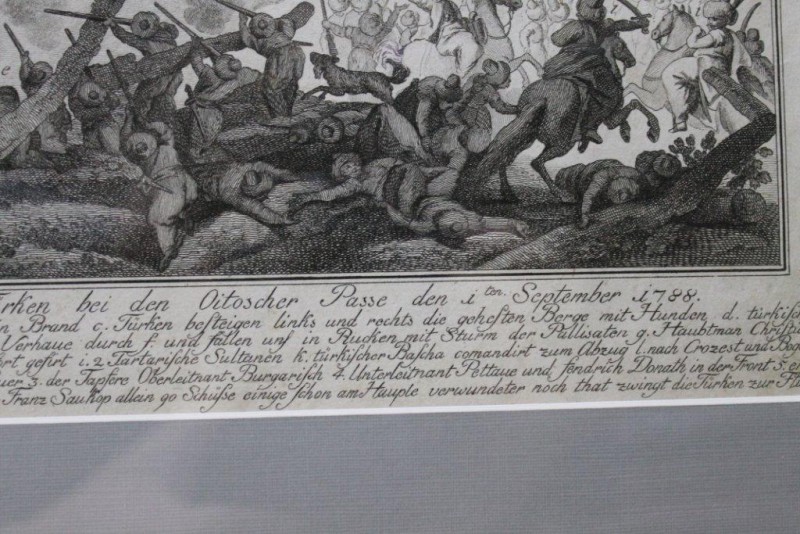 ürken bei den Oitoscher Passe den 1ten. September 1788.
n Brand c. Türken besteigen links und rechts die gehesten Berge mit Hunden d. türkisch
Verhaue durch f. und fallen uns in Rucken mit Sturm der Pallisaten g. Haubtman Christ
ört gefirt i. 2 Tartarische Sultanen k. türkischer Bascha comandirt zum Abzug l. nach Crozest und Bog
uer 3. der Tapfere Oberleitnant Burgarisch 4. Unterleitnant Pettaue und Fendrich Donath in der Front 5. ei
Franz Saukop allein 90 Schusse einige schon am Haupte verwundeter noch that zwingt die Türken zur Fl